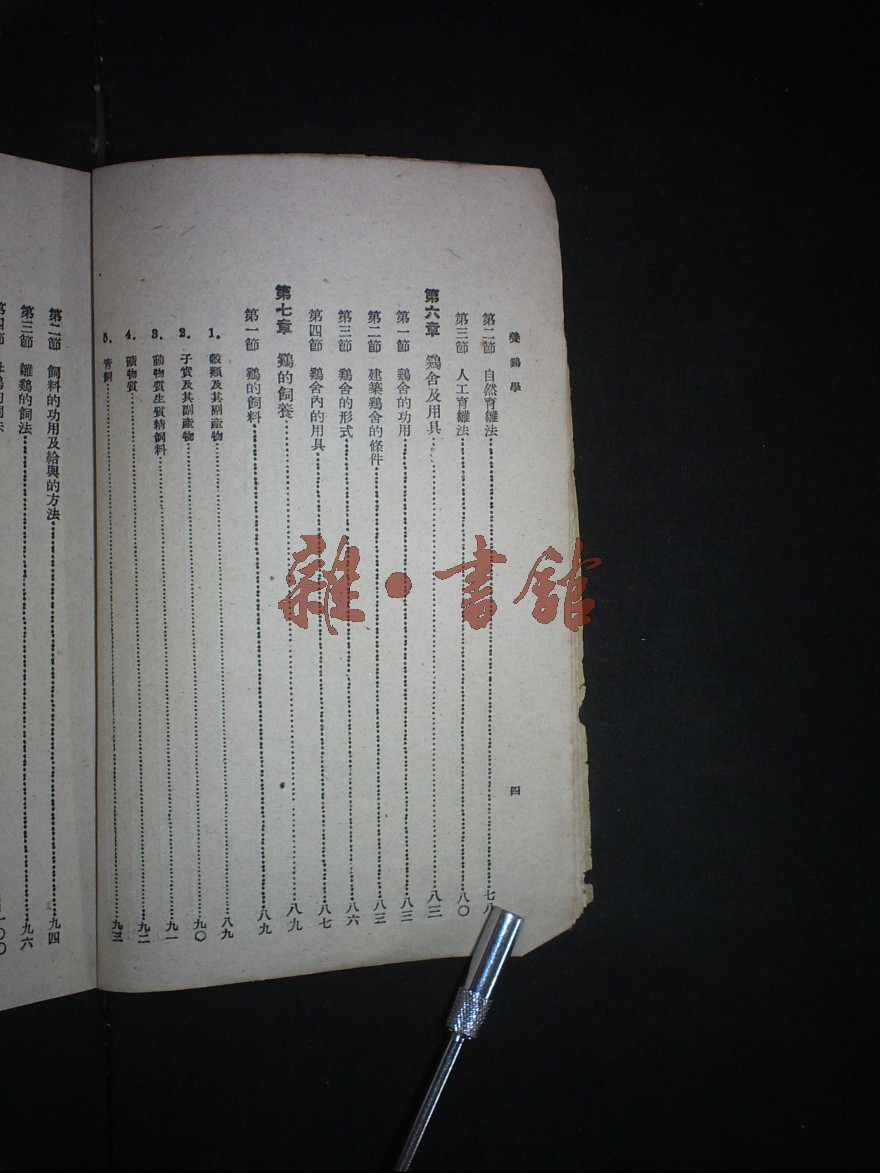 養鷄學
四
第二節 自然育雛法 七八
第三節 人工育雛法 八〇
第六章 鷄舍及用具 八三
第一節 鷄舍的功用 八三
第二節 建築鷄舍的條件 八三
第三節 鷄舍的形式 八六
第四節 鷄舍內的用具 八七
第七章 鷄的飼養 八九
第一節 鷄的飼料 八九
1. 穀類及其副產物 八九
2. 子實及其副產物 九〇
3. 動物質生質精飼料 九一
4. 礦物質 九二
5. 靑飼 九三
第二節 飼料的功用及給與的方法 九四
第三節 雛鷄的飼法 九六
第四節
雜·書舘